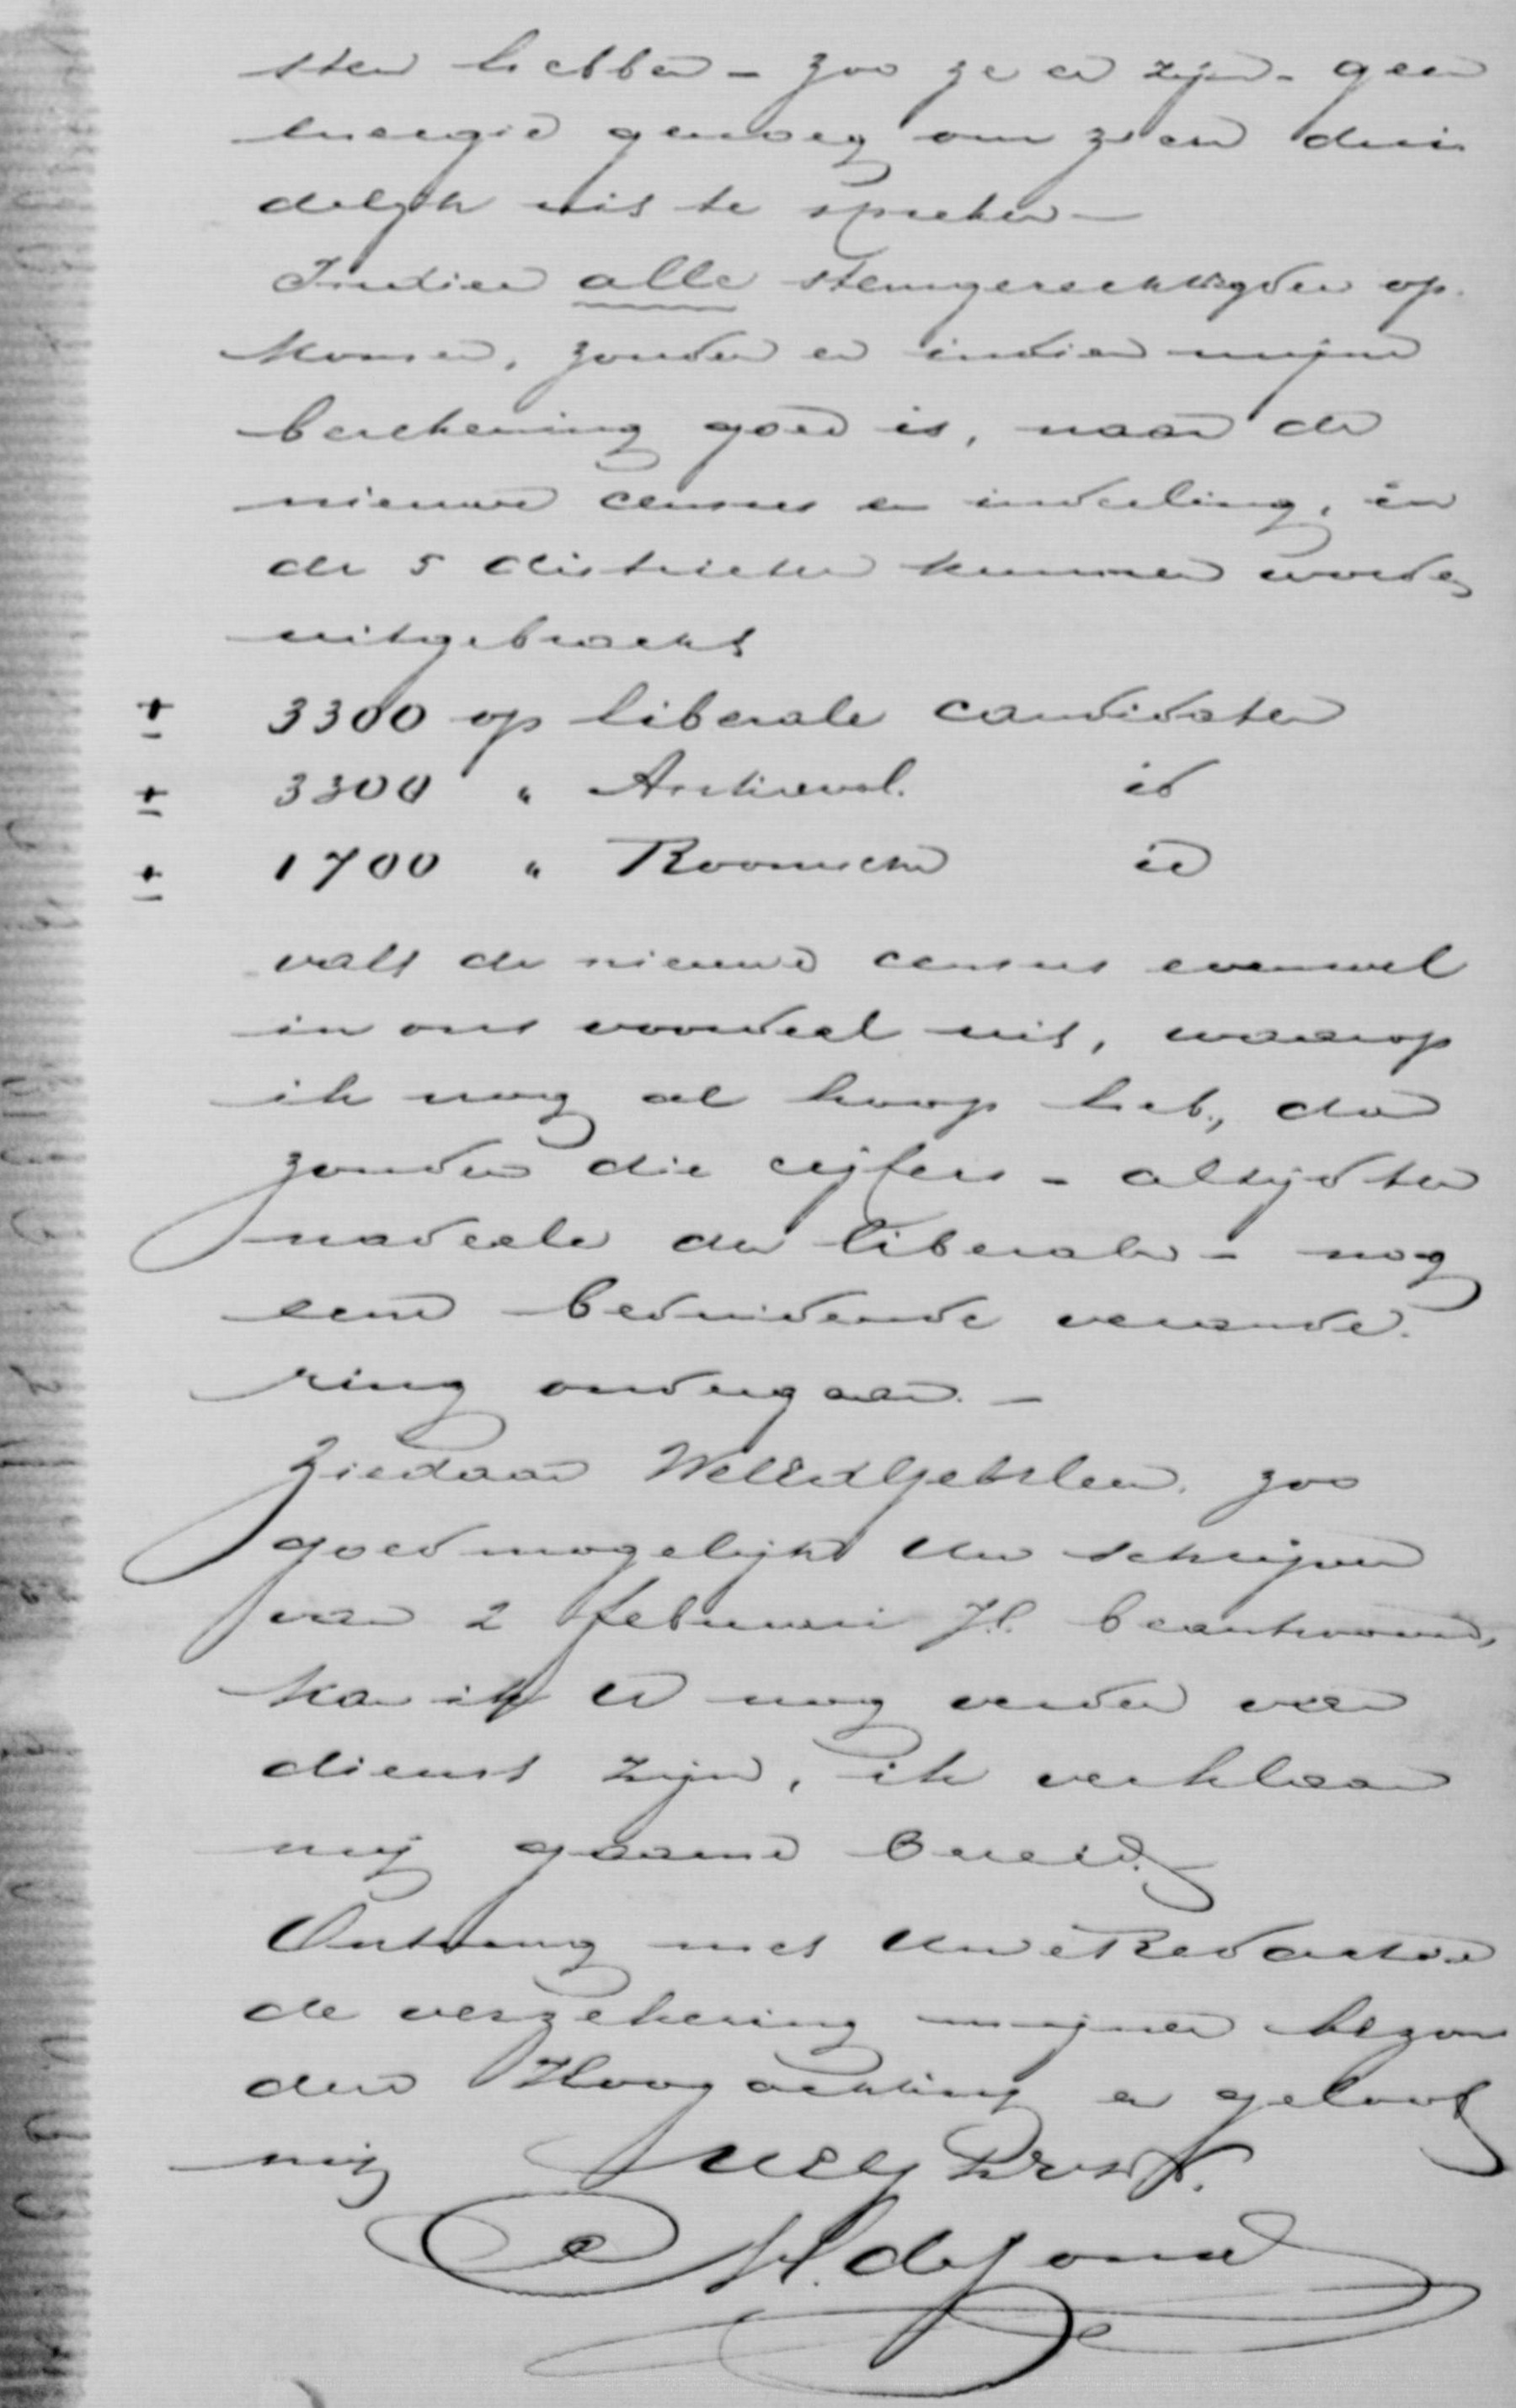 sten hebben - zoo ze er zijn - geen
energie genoeg om zich dui
delijk uit te spreken -
Indien alle stemgerechtigden op
komen, zouden er indien mijne
berekening goed is, naar de
nieuwe census en indeeling, in
de 5 districten kunnen worden
uitgebracht
± 3300 op liberale candidaten
± 3300 " Antirevol. id
± 1700 " Roomsche id
valt de nieuwe census evenwel
in ons voordeel uit, waarop
ik nog al hoop heb, dan
zouden die cijfers - altijd ten
nadeele der liberalen - nog
eene beduidende verande
ring ondergaan. -
Ziedaar WelEdlGeb. zoo
goed mogelijk Uw schrijven
van 2 februari Jl. beantwoord,
kan ik U nog verder van
dienst zijn, ik verklaar
mij gaarne bereid.
Ontvang met Uwe Redactie
de verzekering mijner bizon
dere Hoogachting en geloof
mij
de Jonge